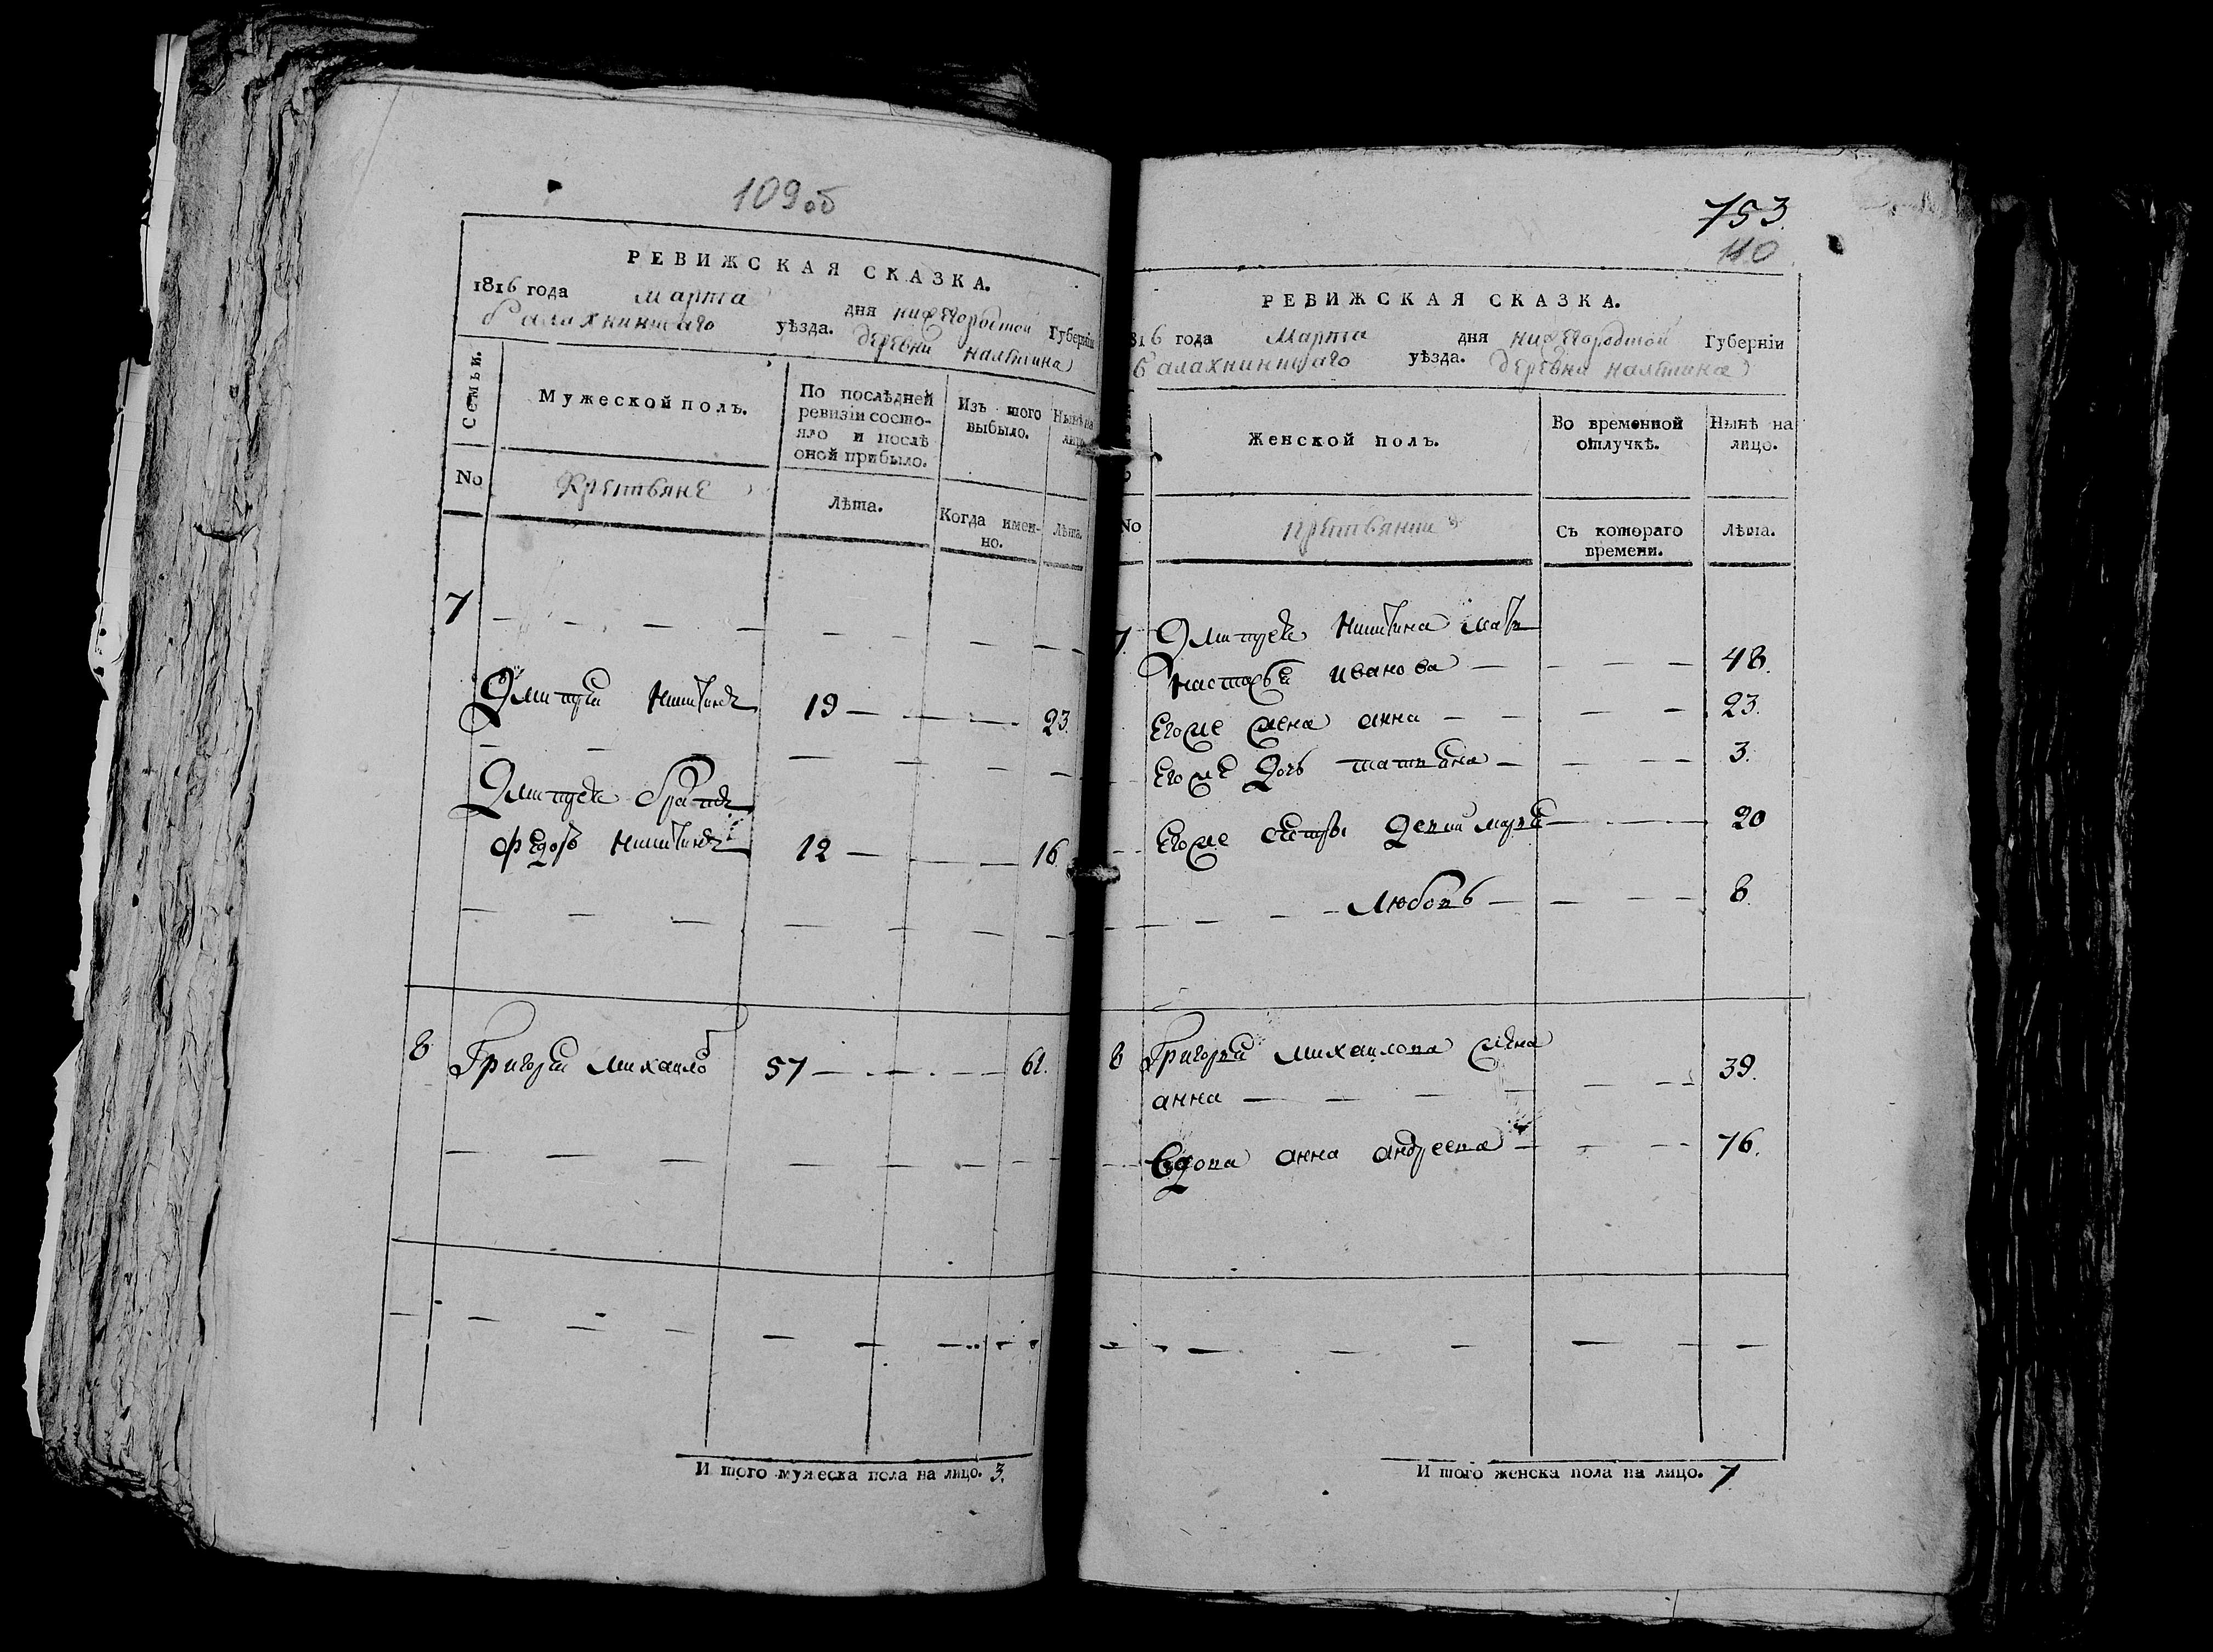 109 об
РЕВИЖСКАЯ СКАЗКА.
1816 года Марта дня нижегородской Губерніи
балахнинскаго уѣзда. деревни
Семьи.
Мужеской полъ.
По послѣдней ревизіи состояло и послѣ оной прибыло.
Изъ того выбыло.
Нынѣ на лицо.
No
Крестьяне
Лѣта.
Когда именно.
Лѣта.
7
Дмитрей Никитинъ 19 — 23.
Дмитрея братъ
Федоръ Никитинъ 12 — 16.
8 Григорей Михайловъ 57 — 61.
И того мужеска пола на лицо. 3.
753.
110
РЕВИЖСКАЯ СКАЗКА.
1816 года Марта дня нижегородской Губерніи
балахнинскаго уѣзда. деревни
Женской полъ.
Во временной отлучкѣ.
Нынѣ на лицо.
No
крестьянки
Съ котораго времени.
Лѣта.
7 Дмитрея Никитина мать
Настасья иванова — 48.
Егоже жена анна — 23.
Егоже дочь татьяна — 3.
Егоже сестры — 20
Любовь — 8.
8 Григорья михайлова жена
анна — 39.
Вдова анна андреева — 76.
И того женска пола на лицо. 7